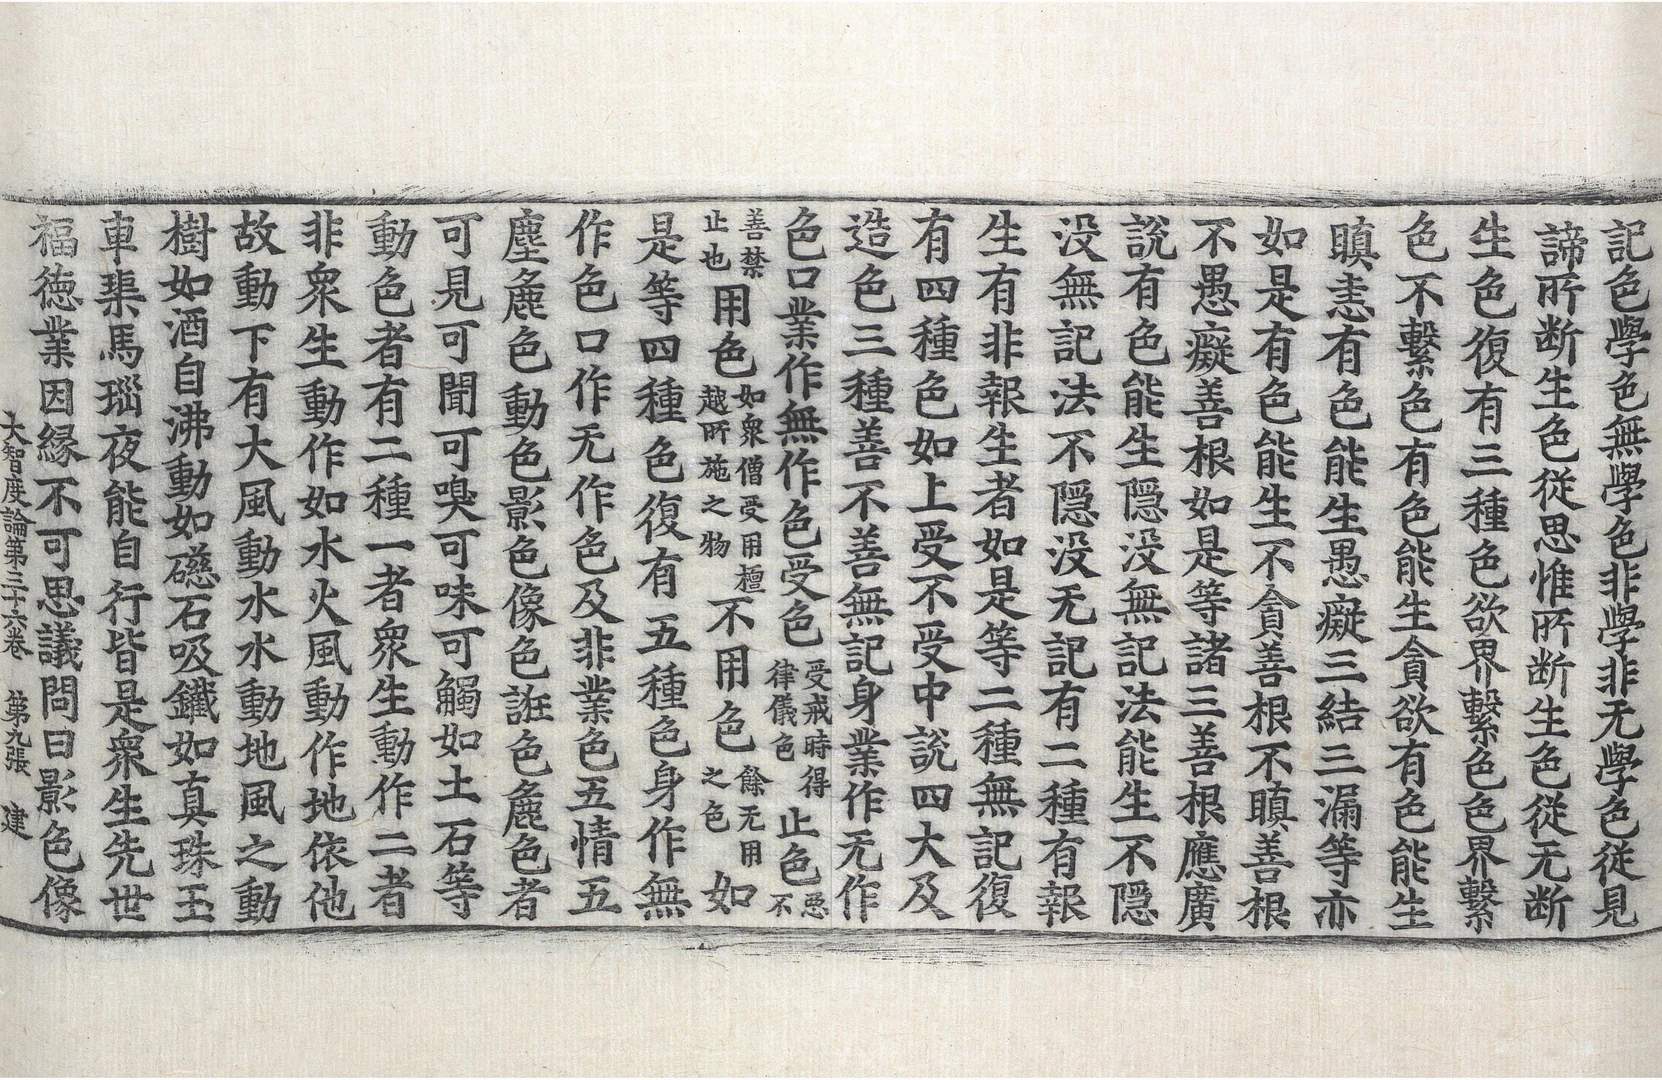 記色學色無學色非學非无學色從見
諦所断生色從思惟所断生色從无断
生色復有三種色欲界繫色色界繫
色不繫色有色能生貪欲有色能生
瞋恚有色能生愚癡三結三漏等亦
如是有色能生不貪善根不瞋善根
不愚癡善根如是等諸三善根應廣
說有色能生隱没無記法能生不隱
没無記法不隱没无記有二種有報
生有非報生者如是等二種無記復
有四種色如上受不受中說四大及
造色三種善不善無記身業作无作
色口業作無作色受色受戒時得律儀色止色惡不
善禁止也用色如衆僧受用檀越所施之物不用色餘无用之色如
是等四種色復有五種色身作無
作色口作无作色及非業色五情五
塵麁色動色影色像色誑色麁色者
可見可聞可嗅可味可觸如土石等
動色者有二種一者衆生動作二者
非衆生動作如水火風動作地依他
故動下有大風動水水動地風之動
樹如酒自沸動如礠石吸鐵如真珠玉
車璖馬瑙夜能自行皆是衆生先世
福徳業因縁不可思議問曰影色像
大智度論第三十六卷 第九張 建